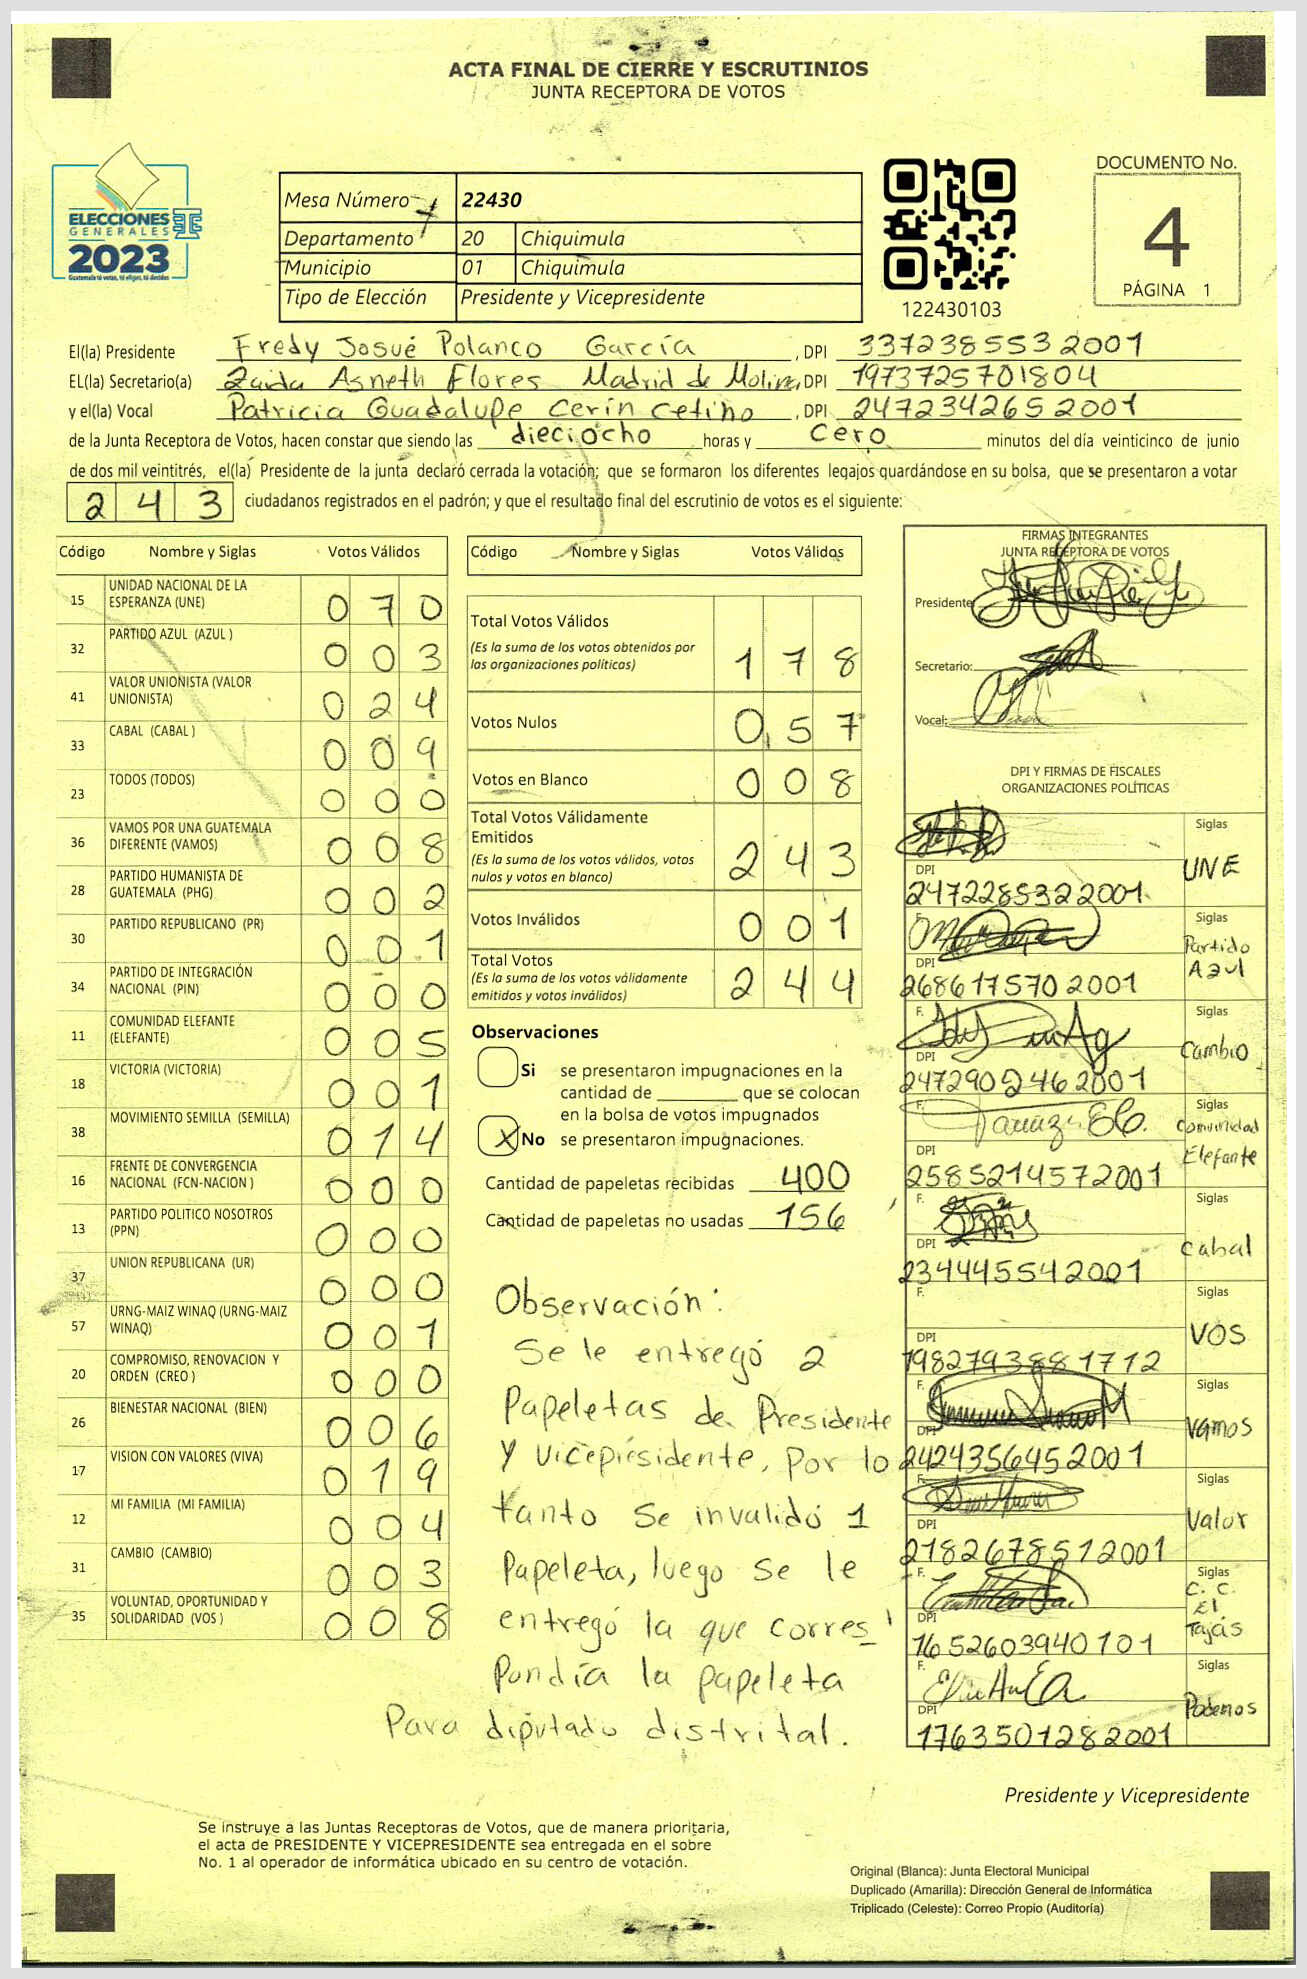 ACTA FINAL DE CIERRE Y ESCRUTINIOS
JUNTA RECEPTORA DE VOTOS
ELECCIONES
GENERALES
2023
Guatemala tú votas, tú eliges, tú decides
Mesa Número 22430
Departamento 20 Chiquimula
Municipio 01 Chiquimula
Tipo de Elección Presidente y Vicepresidente
122430103
DOCUMENTO No.
4
PÁGINA 1
El(la) Presidente Fredy Josué Polanco García, DPI 3372385532001
EL(la) Secretario(a) Zaida Asneth Flores Madrid de Molina, DPI 1973725701804
y el(la) Vocal Patricia Guadalupe Cerín Cetino, DPI 2472342652001
de la Junta Receptora de Votos, hacen constar que siendo las dieciocho horas y cero minutos del día veinticinco de junio
de dos mil veintitrés, el(la) Presidente de la junta declaró cerrada la votación; que se formaron los diferentes legajos guardándose en su bolsa, que se presentaron a votar
243 ciudadanos registrados en el padrón; y que el resultado final del escrutinio de votos es el siguiente:
Código Nombre y Siglas Votos Válidos
15 UNIDAD NACIONAL DE LA ESPERANZA (UNE) 070
32 PARTIDO AZUL (AZUL ) 003
41 VALOR UNIONISTA (VALOR UNIONISTA) 024
33 CABAL (CABAL ) 009
23 TODOS (TODOS) 000
36 VAMOS POR UNA GUATEMALA DIFERENTE (VAMOS) 008
28 PARTIDO HUMANISTA DE GUATEMALA (PHG) 002
30 PARTIDO REPUBLICANO (PR) 001
34 PARTIDO DE INTEGRACIÓN NACIONAL (PIN) 000
11 COMUNIDAD ELEFANTE (ELEFANTE) 005
18 VICTORIA (VICTORIA) 001
38 MOVIMIENTO SEMILLA (SEMILLA) 014
16 FRENTE DE CONVERGENCIA NACIONAL (FCN-NACION ) 000
13 PARTIDO POLITICO NOSOTROS (PPN) 000
37 UNION REPUBLICANA (UR) 000
57 URNG-MAIZ WINAQ (URNG-MAIZ WINAQ) 001
20 COMPROMISO, RENOVACION Y ORDEN (CREO ) 000
26 BIENESTAR NACIONAL (BIEN) 006
17 VISION CON VALORES (VIVA) 019
12 MI FAMILIA (MI FAMILIA) 004
31 CAMBIO (CAMBIO) 003
35 VOLUNTAD, OPORTUNIDAD Y SOLIDARIDAD (VOS ) 008
Código Nombre y Siglas Votos Válidos
Total Votos Válidos
(Es la suma de los votos obtenidos por
las organizaciones políticas) 178
Votos Nulos 057
Votos en Blanco 008
Total Votos Válidamente
Emitidos
(Es la suma de los votos válidos, votos
nulos y votos en blanco) 243
Votos Inválidos 001
Total Votos
(Es la suma de los votos válidamente
emitidos y votos inválidos) 244
Observaciones
Si se presentaron impugnaciones en la
cantidad de ________ que se colocan
en la bolsa de votos impugnados
X No se presentaron impugnaciones.
Cantidad de papeletas recibidas 400
Cantidad de papeletas no usadas 156
Observación:
Se le entregó 2
Papeletas de Presidente
y Vicepresidente, Por lo
tanto Se invalidó 1
Papeleta, luego Se le
entregó la que corres_
Pondía la papeleta
Para diputado distrital.
FIRMAS INTEGRANTES
JUNTA RECEPTORA DE VOTOS
Presidente:
Secretario:
Vocal:
DPI Y FIRMAS DE FISCALES
ORGANIZACIONES POLÍTICAS
Siglas UNE
DPI 2472285322001
Siglas Partido Azul
DPI 2686175702001
F. Siglas Cambio
DPI 2472905462001
F. Siglas Comunidad Elefante
DPI 2585214572001
F. Siglas Cabal
DPI 234445542001
F. Siglas VOS
DPI 1982793881712
F. Siglas Vamos
DPI 2424356452001
F. Siglas Valor
DPI 2182678512001
F. Siglas C. C. El Tajás
DPI 1652603940101
F. Siglas Podemos
DPI 1763501282001
Presidente y Vicepresidente
Se instruye a las Juntas Receptoras de Votos, que de manera prioritaria,
el acta de PRESIDENTE Y VICEPRESIDENTE sea entregada en el sobre
No. 1 al operador de informática ubicado en su centro de votación.
Original (Blanca): Junta Electoral Municipal
Duplicado (Amarilla): Dirección General de Informática
Triplicado (Celeste): Correo Propio (Auditoría)